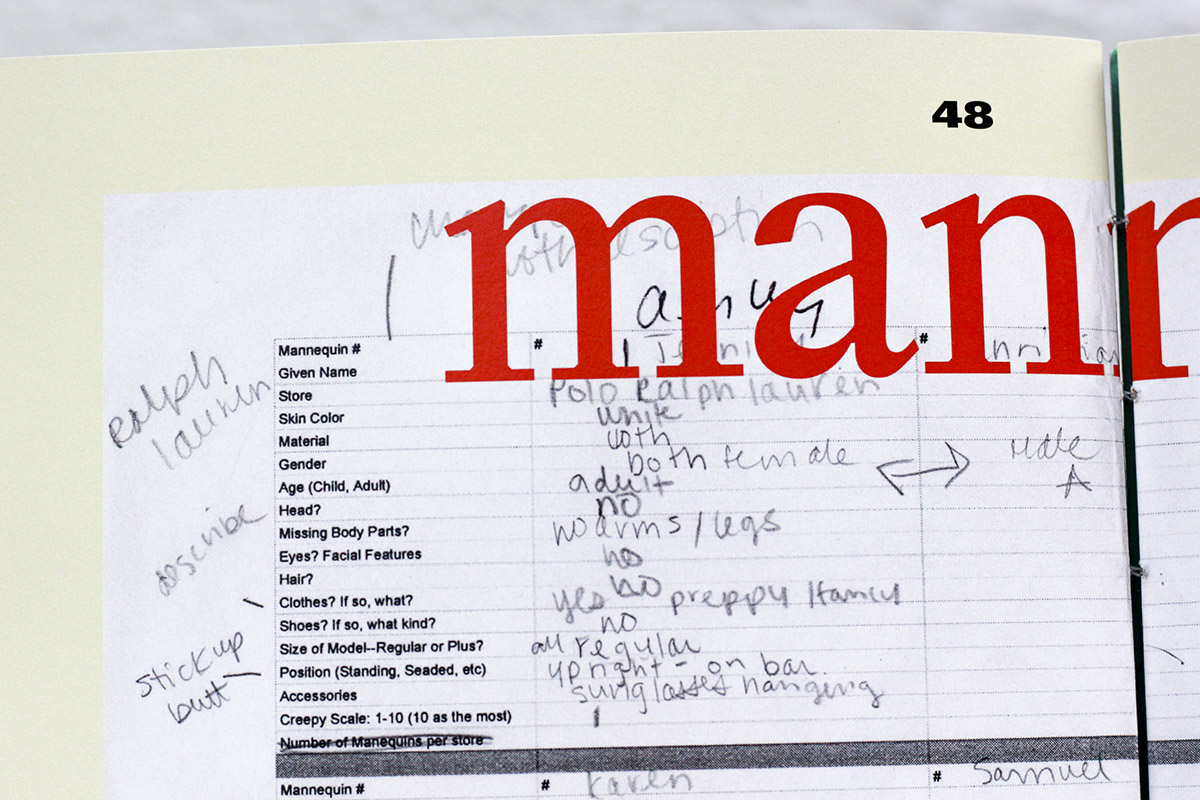 48
mann
description
Ralph
lauren
Mannequin # # 1 #
Given Name
Store Polo Ralph lauren
Skin Color white
Material coth
Gender both female male
A
Age (Child, Adult) adult
Head? no
Missing Body Parts? no arms / legs
Eyes? Facial Features no
Hair? no
describe
Clothes? If so, what? yes preppy / fancy
Shoes? If so, what kind? no
Size of Model--Regular or Plus? all regular
Position (Standing, Seaded, etc) upright - on bar
stick up
butt
Accessories sunglasses hangeng
Creepy Scale: 1-10 (10 as the most) 1
Number of Manequins per store
Mannequin # # Karen # Samuel